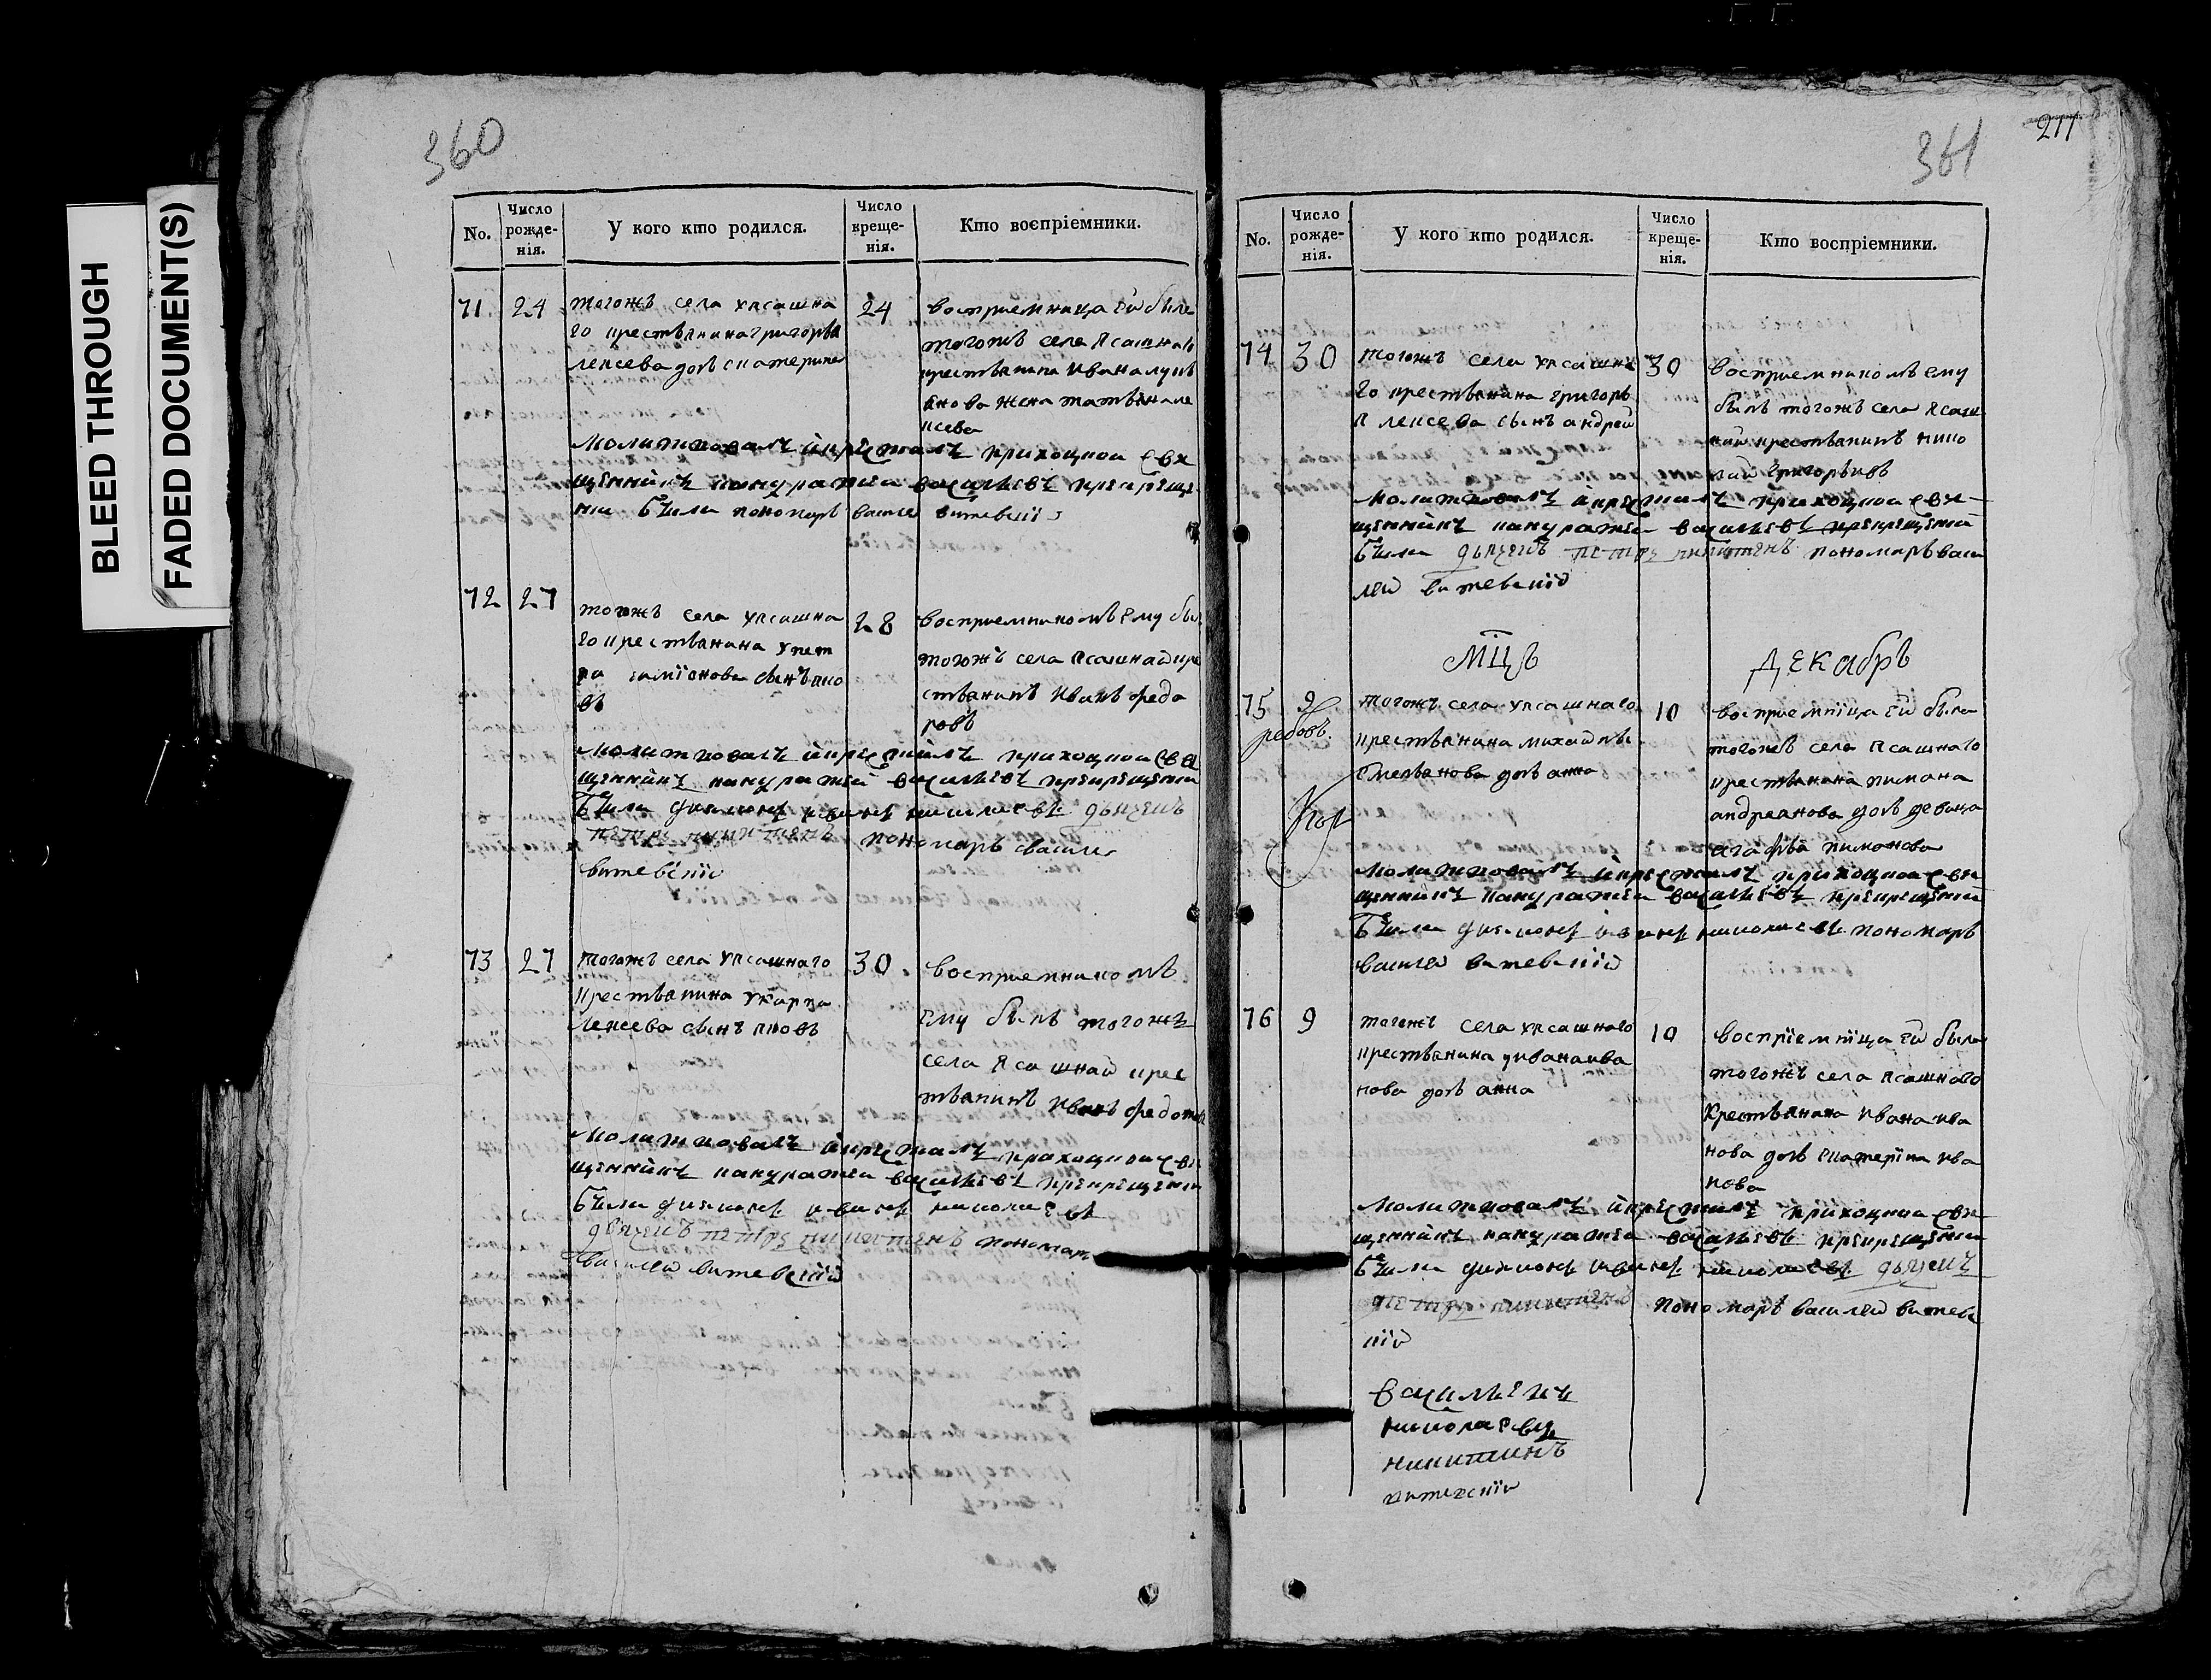 BLEED THROUGH
FADED DOCUMENT(S)
360
No.
Число рожде-нія.
У кого кто родился.
Число креще-нія.
Кто воспріемники.
71 24
тогожъ села уясашна
го крестьянина григорья
лексева дочь екатерина
24
восприемница ей была
тогожъ села ясашнаго
крестьянина ивана лукь
янова жена татьяна але
ксева
молитвовалъ и крестилъ приходцкой свя
щенникъ панкратей васильевъ при креще
нии были пономарь василей витевский
72 27
тогожъ села уясашна
го крестьянина упет
ра симионова сынъ яко
въ
28
восприемникомъ ему был
тогожъ села ясашнай кре
стьянинъ иванъ федо
ровъ
молитвовалъ и крестилъ приходцкой свя
щенникъ панкратей васильевъ при крещении
были диаконъ иванъ николаевъ дьячекъ
петръ никитинъ пономарь василей
витевский
73 27
тогожъ села уясашнаго
крестьянина укарпа
лексева сынъ яковъ
30
восприемникомъ
ему былъ тогожъ
села ясашнай крес
тьянинъ иванъ федотовъ
молитвовалъ и крестилъ приходцкой свя
щенникъ панкратей васильевъ при крещении
были диаконъ иванъ николаевъ
дьячекъ петръ никитинъ пономарь
василей витевский
361
211
No.
Число рожде-нія.
У кого кто родился.
Число креще-нія.
Кто воспріемники.
74 30
тогожъ села уясашна
го крестьянина григорь
я лексева сынъ андрей
30
восприемникомъ ему
былъ тогожъ села ясаш
най крестьянинъ нико
лай григорьивъ
молитвовалъ и крестилъ приходцкой свя
щенникъ панкратей васильевъ при крещении
были дьячекъ петръ никитинъ пономарь васи
лей витевский
мцъ декабръ
75 9
тогожъ села уясашнаго
крестьянина михайлы
емельянова дочь анна
10
восприемница ей была
тогожъ села ясашнаго
крестьянина пимана
андреянова дочь девица
агафья пимонова
молитвовалъ и крестилъ приходцкой свя
щенникъ панкратей васильевъ при крещении
были диаконъ иванъ николаевъ пономарь
василей витевский
76 9
тогожъ села уясашнаго
крестьянина уивана ива
нова дочь анна
10
восприемница ей была
тогожъ села ясашнаго
крестьянина ивана ива
нова дочь екатерина ива
нова
молитвовалъ и крестилъ приходцкой свя
щенникъ панкратей васильевъ при крещении
были диаконъ иванъ николаевъ дьячекъ
петръ никитинъ пономарь василей витев
ский
васильевъ
николаевъ
никитинъ
витевский